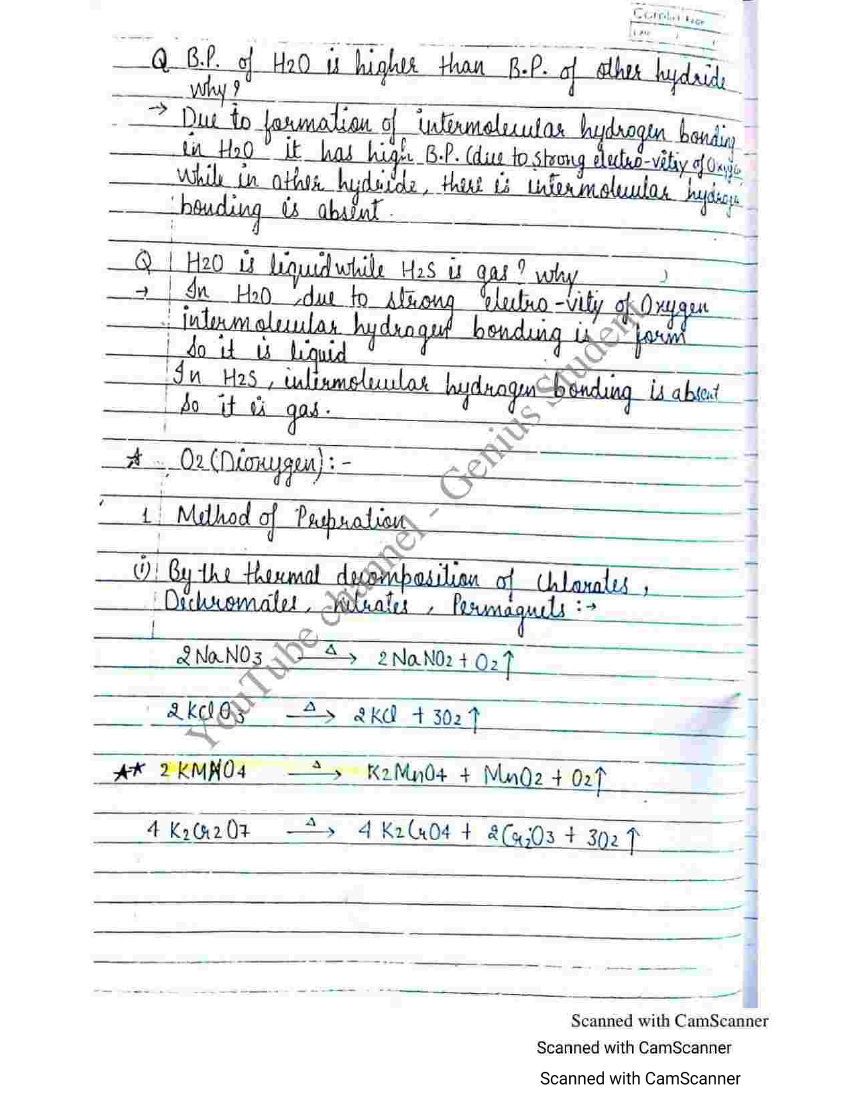 Q B.P. of H2O is higher than B.P. of other hydride
why?
→ Due to formation of intermolecular hydrogen bonding
in H2O it has high B.P. (due to strong electro-vity of Oxygen
While in other hydride, there is intermolecular hydrogen
bonding is absent.
Q H2O is liquid while H2S is gas? why
→ In H2O, due to strong electro-vity of Oxygen
intermolecular hydrogen bonding is form
So it is liquid
In H2S, intermolecular hydrogen bonding is absent
So it is gas.
☆ O2 (Dioxygen):-
1 Method of Prepration
(i) By the thermal decomposition of Chlorates,
Dichromates, nitrates, Permagnets:→
2NaNO3 Δ→ 2NaNO2 + O2↑
2KClO3 Δ→ 2KCl + 3O2↑
★★ 2KMNO4 Δ→ K2MnO4 + MnO2 + O2↑
4 K2Cr2O7 Δ→ 4 K2CrO4 + 2Cr2O3 + 3O2↑
YouTube channel - Genius Student
Scanned with CamScanner
Scanned with CamScanner
Scanned with CamScanner